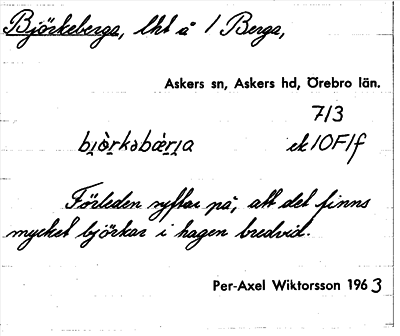 Björkeberga, lht å 1 Berga,
Askers sn, Askers hd, Örebro län.
7/3
ek 10F1f
Förleden syftar på, att det finns
mycket björkar i hagen bredvid.
Per-Axel Wiktorsson 1963